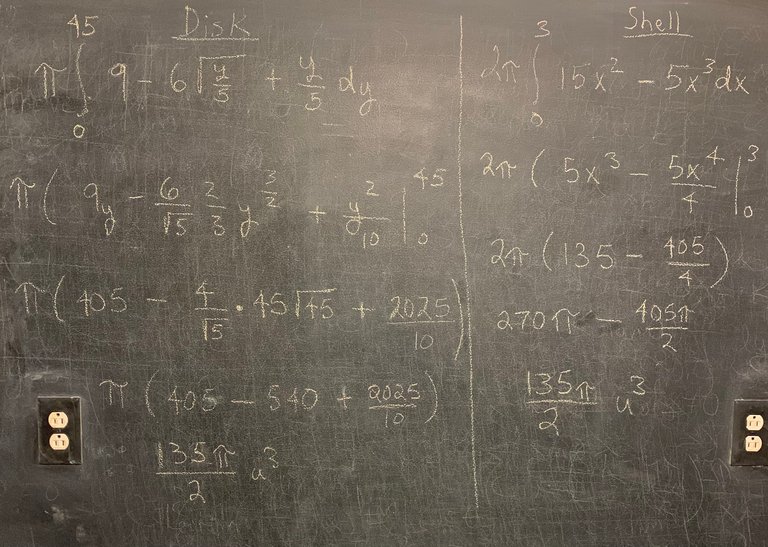 Disk
π ∫₀⁴⁵ 9 − 6√(y/5) + y/5 dy
π ( 9y − 6/√5 2/3 y^(3/2) + y²/10 |₀⁴⁵
π ( 405 − 4/√5 · 45√45 + 2025/10 )
π ( 405 − 540 + 2025/10 )
135π/2 u³
Shell
2π ∫₀³ 15x² − 5x³ dx
2π ( 5x³ − 5x⁴/4 |₀³
2π ( 135 − 405/4 )
270π − 405π/2
135π/2 u³